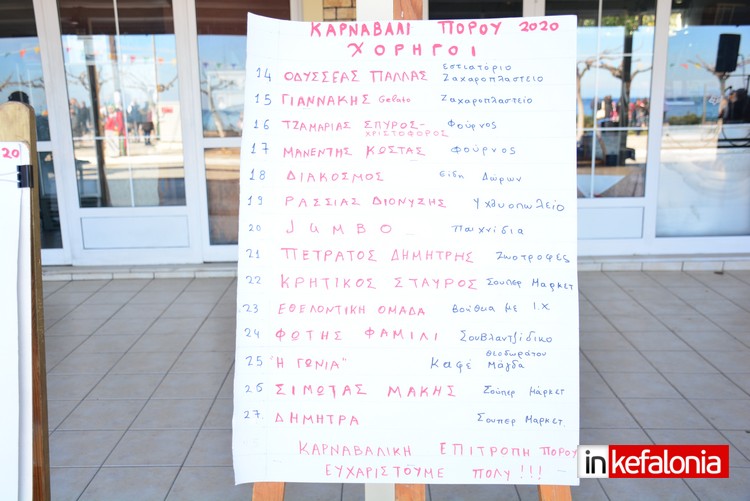 ΚΑΡΝΑΒΑΛΙ ΠΟΡΟΥ 2020
ΧΟΡΗΓΟΙ
14 ΟΔΥΣΣΕΑΣ ΠΑΛΛΑΣ εστιατόριο Ζαχαροπλαστείο
15 ΓΙΑΝΝΑΚΗΣ Gelato Ζαχαροπλαστείο
16 ΤΖΑΜΑΡΙΑΣ ΣΠΥΡΟΣ- ΧΡΙΣΤΟΦΟΡΟΣ Φούρνος
17 ΜΑΝΕΝΤΗΣ ΚΩΣΤΑΣ Φούρνος
18 ΔΙΑΚΟΣΜΟΣ είδη Δώρων
19 ΡΑΣΣΙΑΣ ΔΙΟΝΥΣΗΣ Υχθυοπωλείο
20 JUMBO Παιχνίδια
21 ΠΕΤΡΑΤΟΣ ΔΗΜΗΤΡΗΣ Ζωοτροφές
22 ΚΡΗΤΙΚΟΣ ΣΤΑΥΡΟΣ Σουπερ Μαρκετ
23 ΕΘΕΛΟΝΤΙΚΗ ΟΜΑΔΑ βοήθεια με Ι.Χ
24 ΦΩΤΗΣ ΦΑΜΙΛΙ Σουβλαντζίδικο
25 "Η ΓΩΝΙΑ" καφέ Θεοδωράτου Μάγδα
26 ΣΙΜΩΤΑΣ ΜΑΚΗΣ Σούπερ Μάρκετ
27. ΔΗΜΗΤΡΑ Σουπερ Μαρκετ.
ΚΑΡΝΑΒΑΛΙΚΗ ΕΠΙΤΡΟΠΗ ΠΟΡΟΥ
ΕΥΧΑΡΙΣΤΟΥΜΕ ΠΟΛΥ !!!
20
inkefalonia